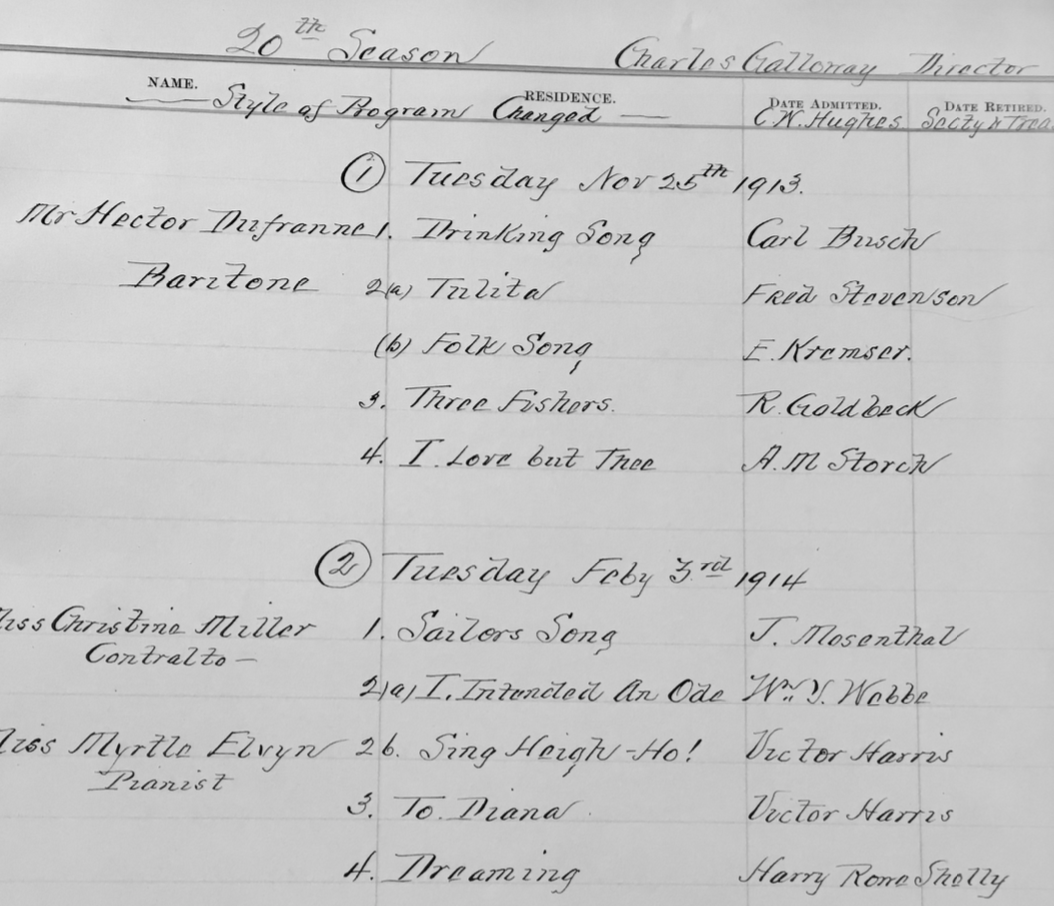 20th Season Charles Galloway Director
NAME. RESIDENCE. DATE ADMITTED. DATE RETIRED.
Style of Program Changed — C.W. Hughes Secty & Trea
① Tuesday Nov 25th 1913.
Mr Hector Dufranne 1. Drinking Song Carl Busch
Baritone 2(a) Tulita Fred Stevenson
(b) Folk Song E. Kremser.
3. Three Fishers. R. Goldbeck
4. I Love but Thee A.M Storch
② Tuesday Feby 3rd 1914
iss Christine Miller 1. Sailors Song J. Mosenthal
Contralto —
2(a) I. Intended An Ode Wm. Y. Webbe
iss Myrtle Elvyn 2b. Sing Heigh-Ho! Victor Harris
Pianist
3. To. Diana. Victor Harris
4. Dreaming Harry Rowe Shelly